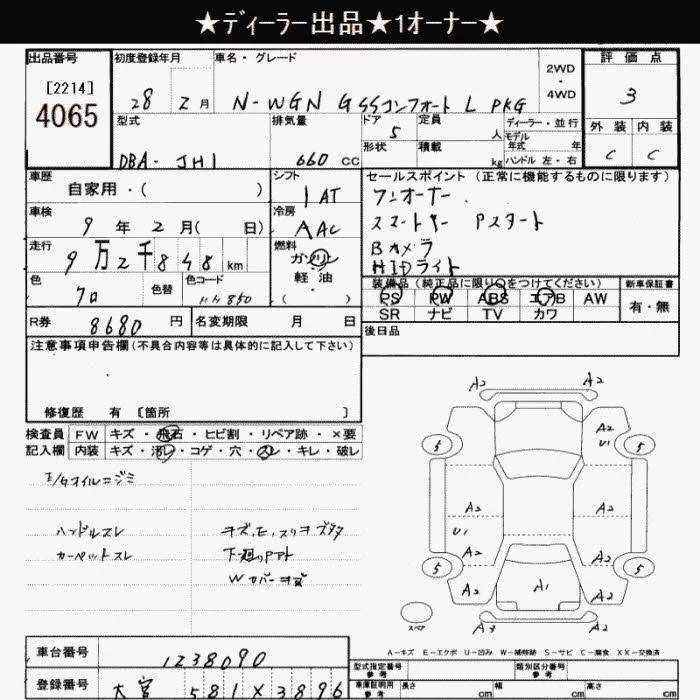 ★ディーラー出品★1オーナー★
出品番号 初度登録年月 車名・グレード 評価点
[2214] 2WD・4WD
4065 28 2月 N-WGN G SSコンフォート L PKG 3
型式 排気量 ドア 5 定員 人 ディーラー・並行 外装 内装
モデル年式 年
形状 積載 kg ハンドル 左・右
DBA-JH1 660 CC C C
車歴 シフト セールスポイント (正常に機能するものに限ります)
自家用・( ) IAT ワンオーナー
車検 冷房 スマートキー Pスタート
9年 2月( 日) AAC Bカメラ
走行 燃料 HIDライト
9万2千848km ガソリン
軽油
色 色替 色コード 装備品(純正品に限り○をつけてください) 新車保証書
クロ 850 PS PW ABS エアB AW 有・無
SR ナビ TV カワ
R券 8680円 名変期限 月 日 後日品
注意事項申告欄(不具合内容等は具体的に記入して下さい)
修復歴 有 [箇所 ]
検査員 FW キズ・飛石・ヒビ割・リペア跡・×要
記入欄 内装 キズ・汚レ・コゲ・穴・スレ・キレ・破レ
E/Gオイルニジミ
ハンドルスレ
カーペットスレ
下廻りPアト
Wカバーキズ
A2 A2
A2
U1
5 5
A2 A2
U1
A2 A2
5 5
A2 A1 A2
スペア
A3 A2
A-キズ E-エクボ U-凹み W-補修跡 S-サビ C-腐食 XX-交換済
車台番号 1238090
型式指定番号 参考 類別区分番号 参考
登録番号 大宮 581 × 3896
車庫証明用 参考 長さ cm 幅 cm 高さ cm